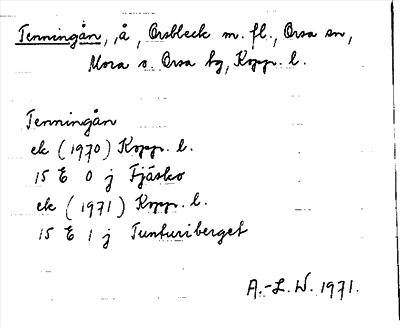 Tenningån, å, Orsbleck m. fl., Orsa sn,
Mora o. Orsa hg, Kopp. l.
Tenningån
ek (1970) Kopp. l.
15 E 0 j Fjäsko
ek (1971) Kopp. l.
15 E 1 j Tunturiberget
A.-L. W. 1971.